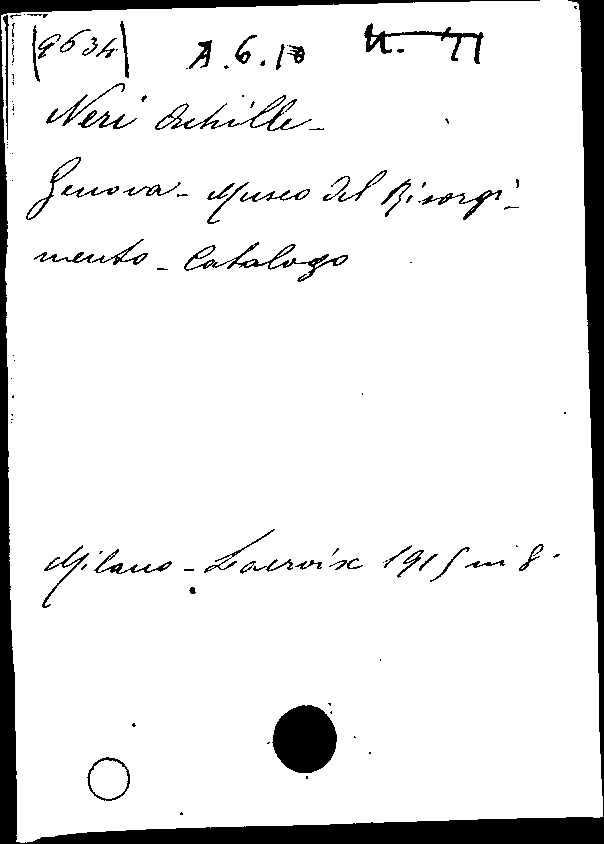 9634 A.6.10
Neri Achille_
Genova - Museo del Risorgi_
mento _ Catalogo
Milano - Lacroix 1915 in 8.